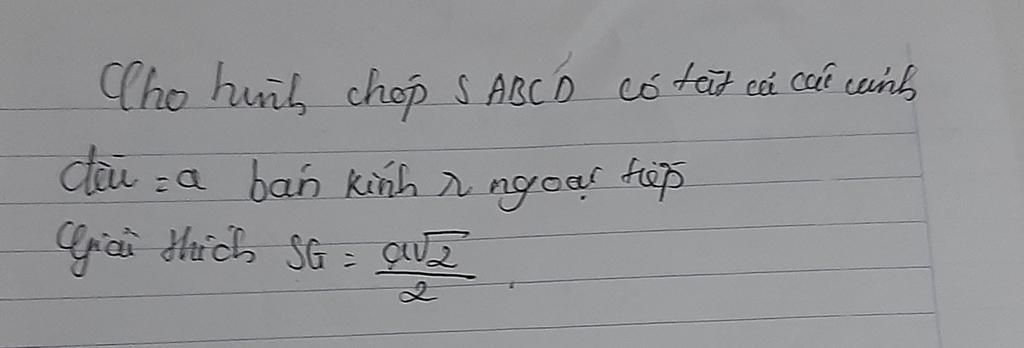 Cho hình chóp S ABCD có tất cả các cạnh
đều = a bán kính r ngoại tiếp
Giải thích SG = a√2/2.